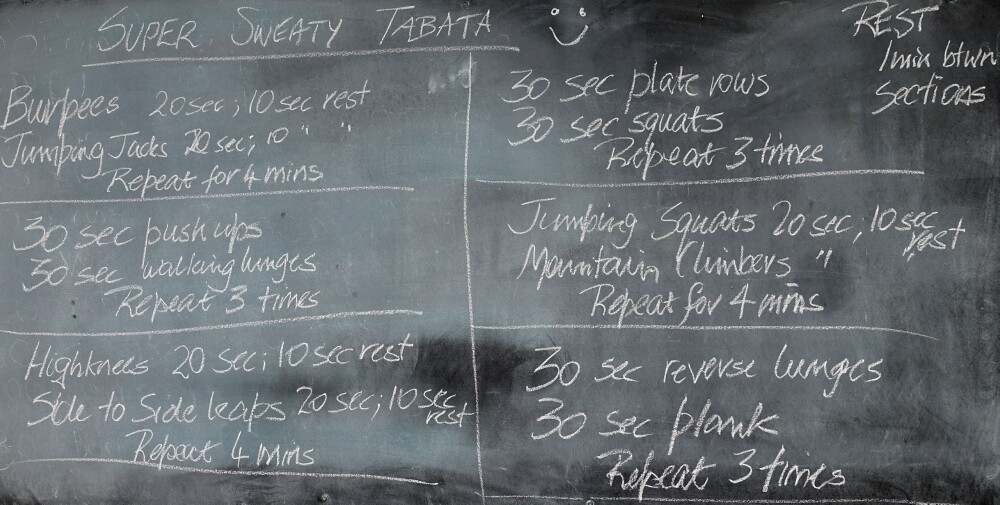 SUPER SWEATY TABATA
REST
1min btwn
sections
Burpees 20sec; 10 sec rest
Jumping Jacks 20 sec; 10 " "
Repeat for 4 mins
30 sec push ups
30 sec walking lunges
Repeat 3 times
Highknees 20 sec; 10 sec rest
Side to Side leaps 20 sec; 10 sec
rest
Repeat 4 mins
30 sec plate rows
30 sec squats
Repeat 3 times
Jumping Squats 20 sec; 10 sec
rest
Mountain Climbers "
Repeat for 4 mins
30 sec reverse lunges
30 sec plank
Repeat 3 times